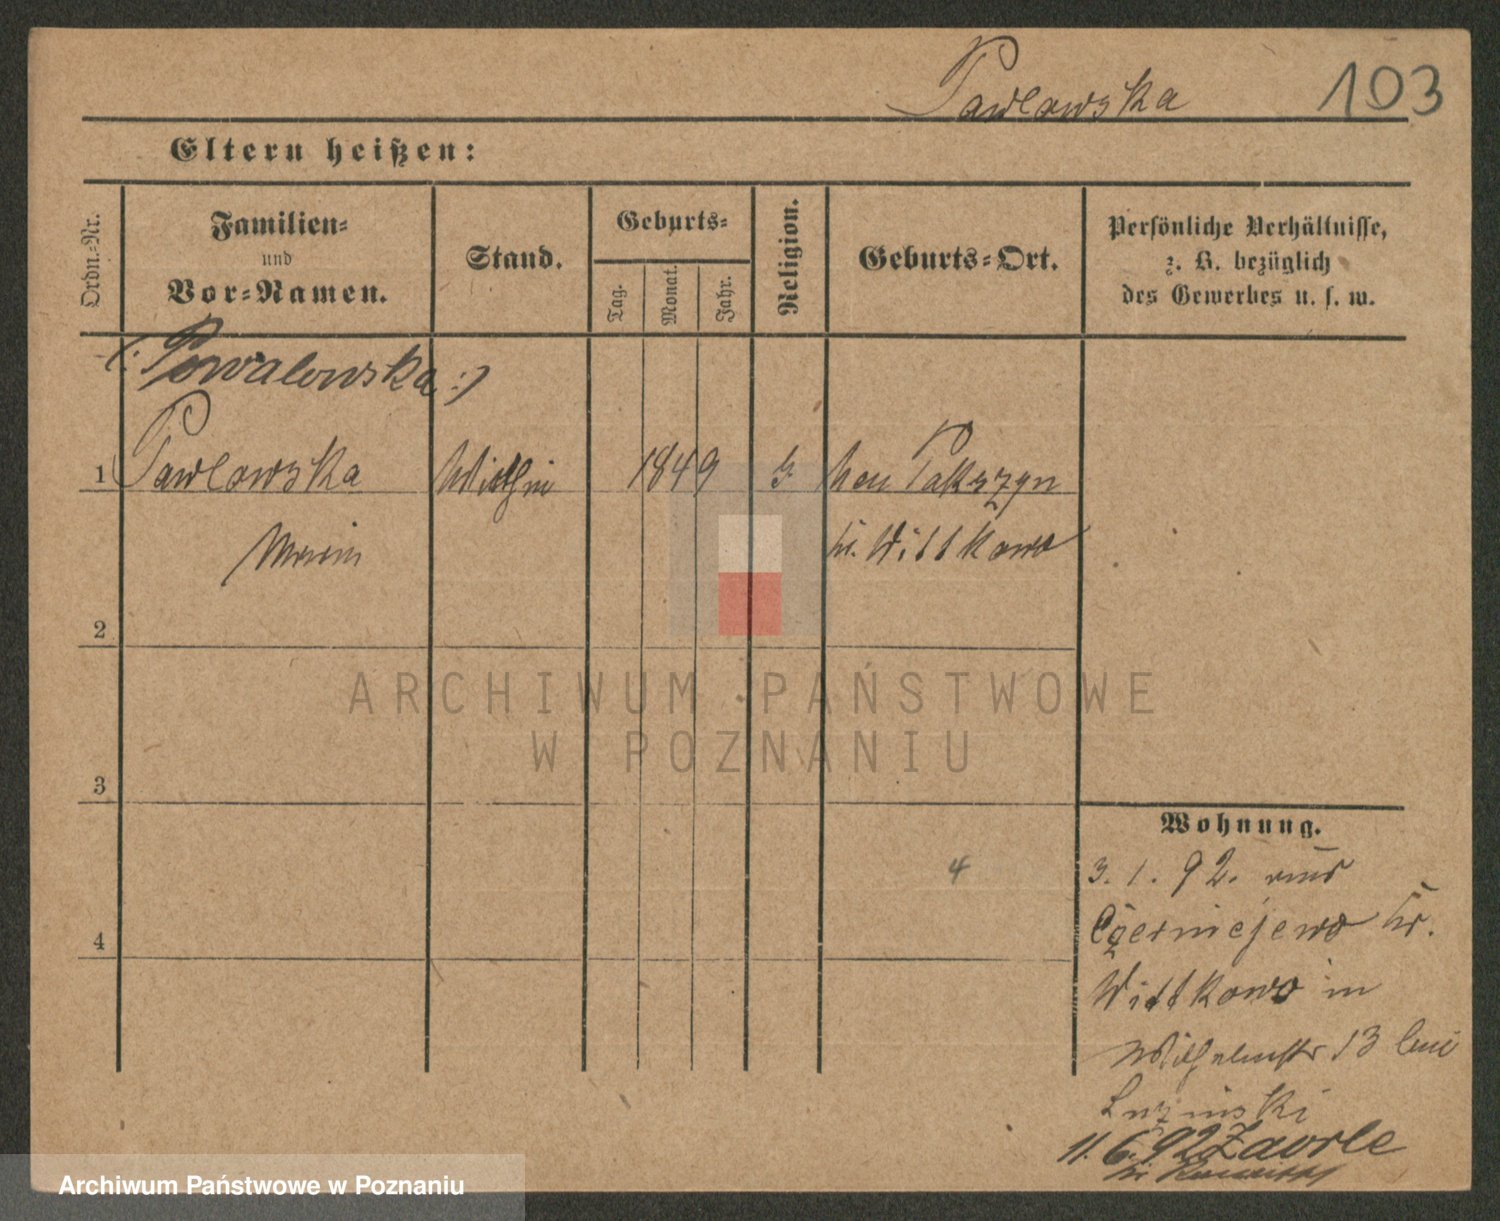 Pawlowska 103
Eltern heißen:
Ordn.-Nr.
Familien-
und
Vor-Namen.
Stand.
Geburts-
Tag.
Monat.
Jahr.
Religion.
Geburts-Ort.
Persönliche Verhältnisse,
z. B. bezüglich
des Gewerbes u. s. w.
(: Powalowska :)
1 Pawlowska 1849 Neu Pakszyn
Kr. Wittkowo
2
3
4
4
Wohnung.
3. 1. 92. aus
Czerniejewo Kr.
Wittkowo in
Wilhelmstr 13 bei
Luzinski
11. 6. 92 Zawrle
ARCHIWUM PAŃSTWOWE
W POZNANIU
Archiwum Państwowe w Poznaniu